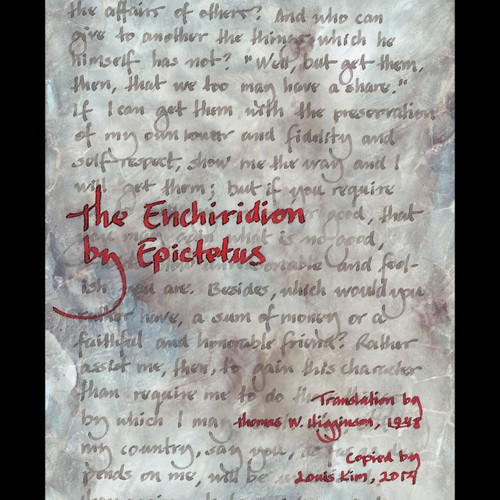 the affairs of others? And who can
give to another the things which he
himself has not? "Well, but get them,
then, that we too may have a share."
If I can get them with the preservation
of my own power and fidelity and
self-respect, show me the way and I
will get them; but if you require
the Enchiridion
good, that
what is no good,
by Epictetus
and fool-
ish you are. Besides, which would you
rather have, a sum of money or a
faithful and honorable friend? Rather
assist me, then, to gain this character
than require me to do
Translation by
by which I may
Thomas W. Higginson, 1948
my country, say you, as
Copied by
pends on me, will be
Louis Kim, 2017